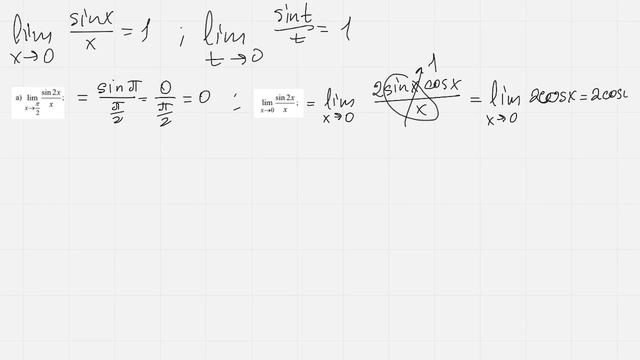 lim x→0 sinx/x = 1 ; lim t→0 sint/t = 1
a) lim x→π/2 sin 2x/x ; = sinπ/(π/2) = 0/(π/2) = 0 ; lim x→0 sin 2x/x ; = lim x→0 2sinx cosx/x 1 = lim x→0 2cosx = 2cos